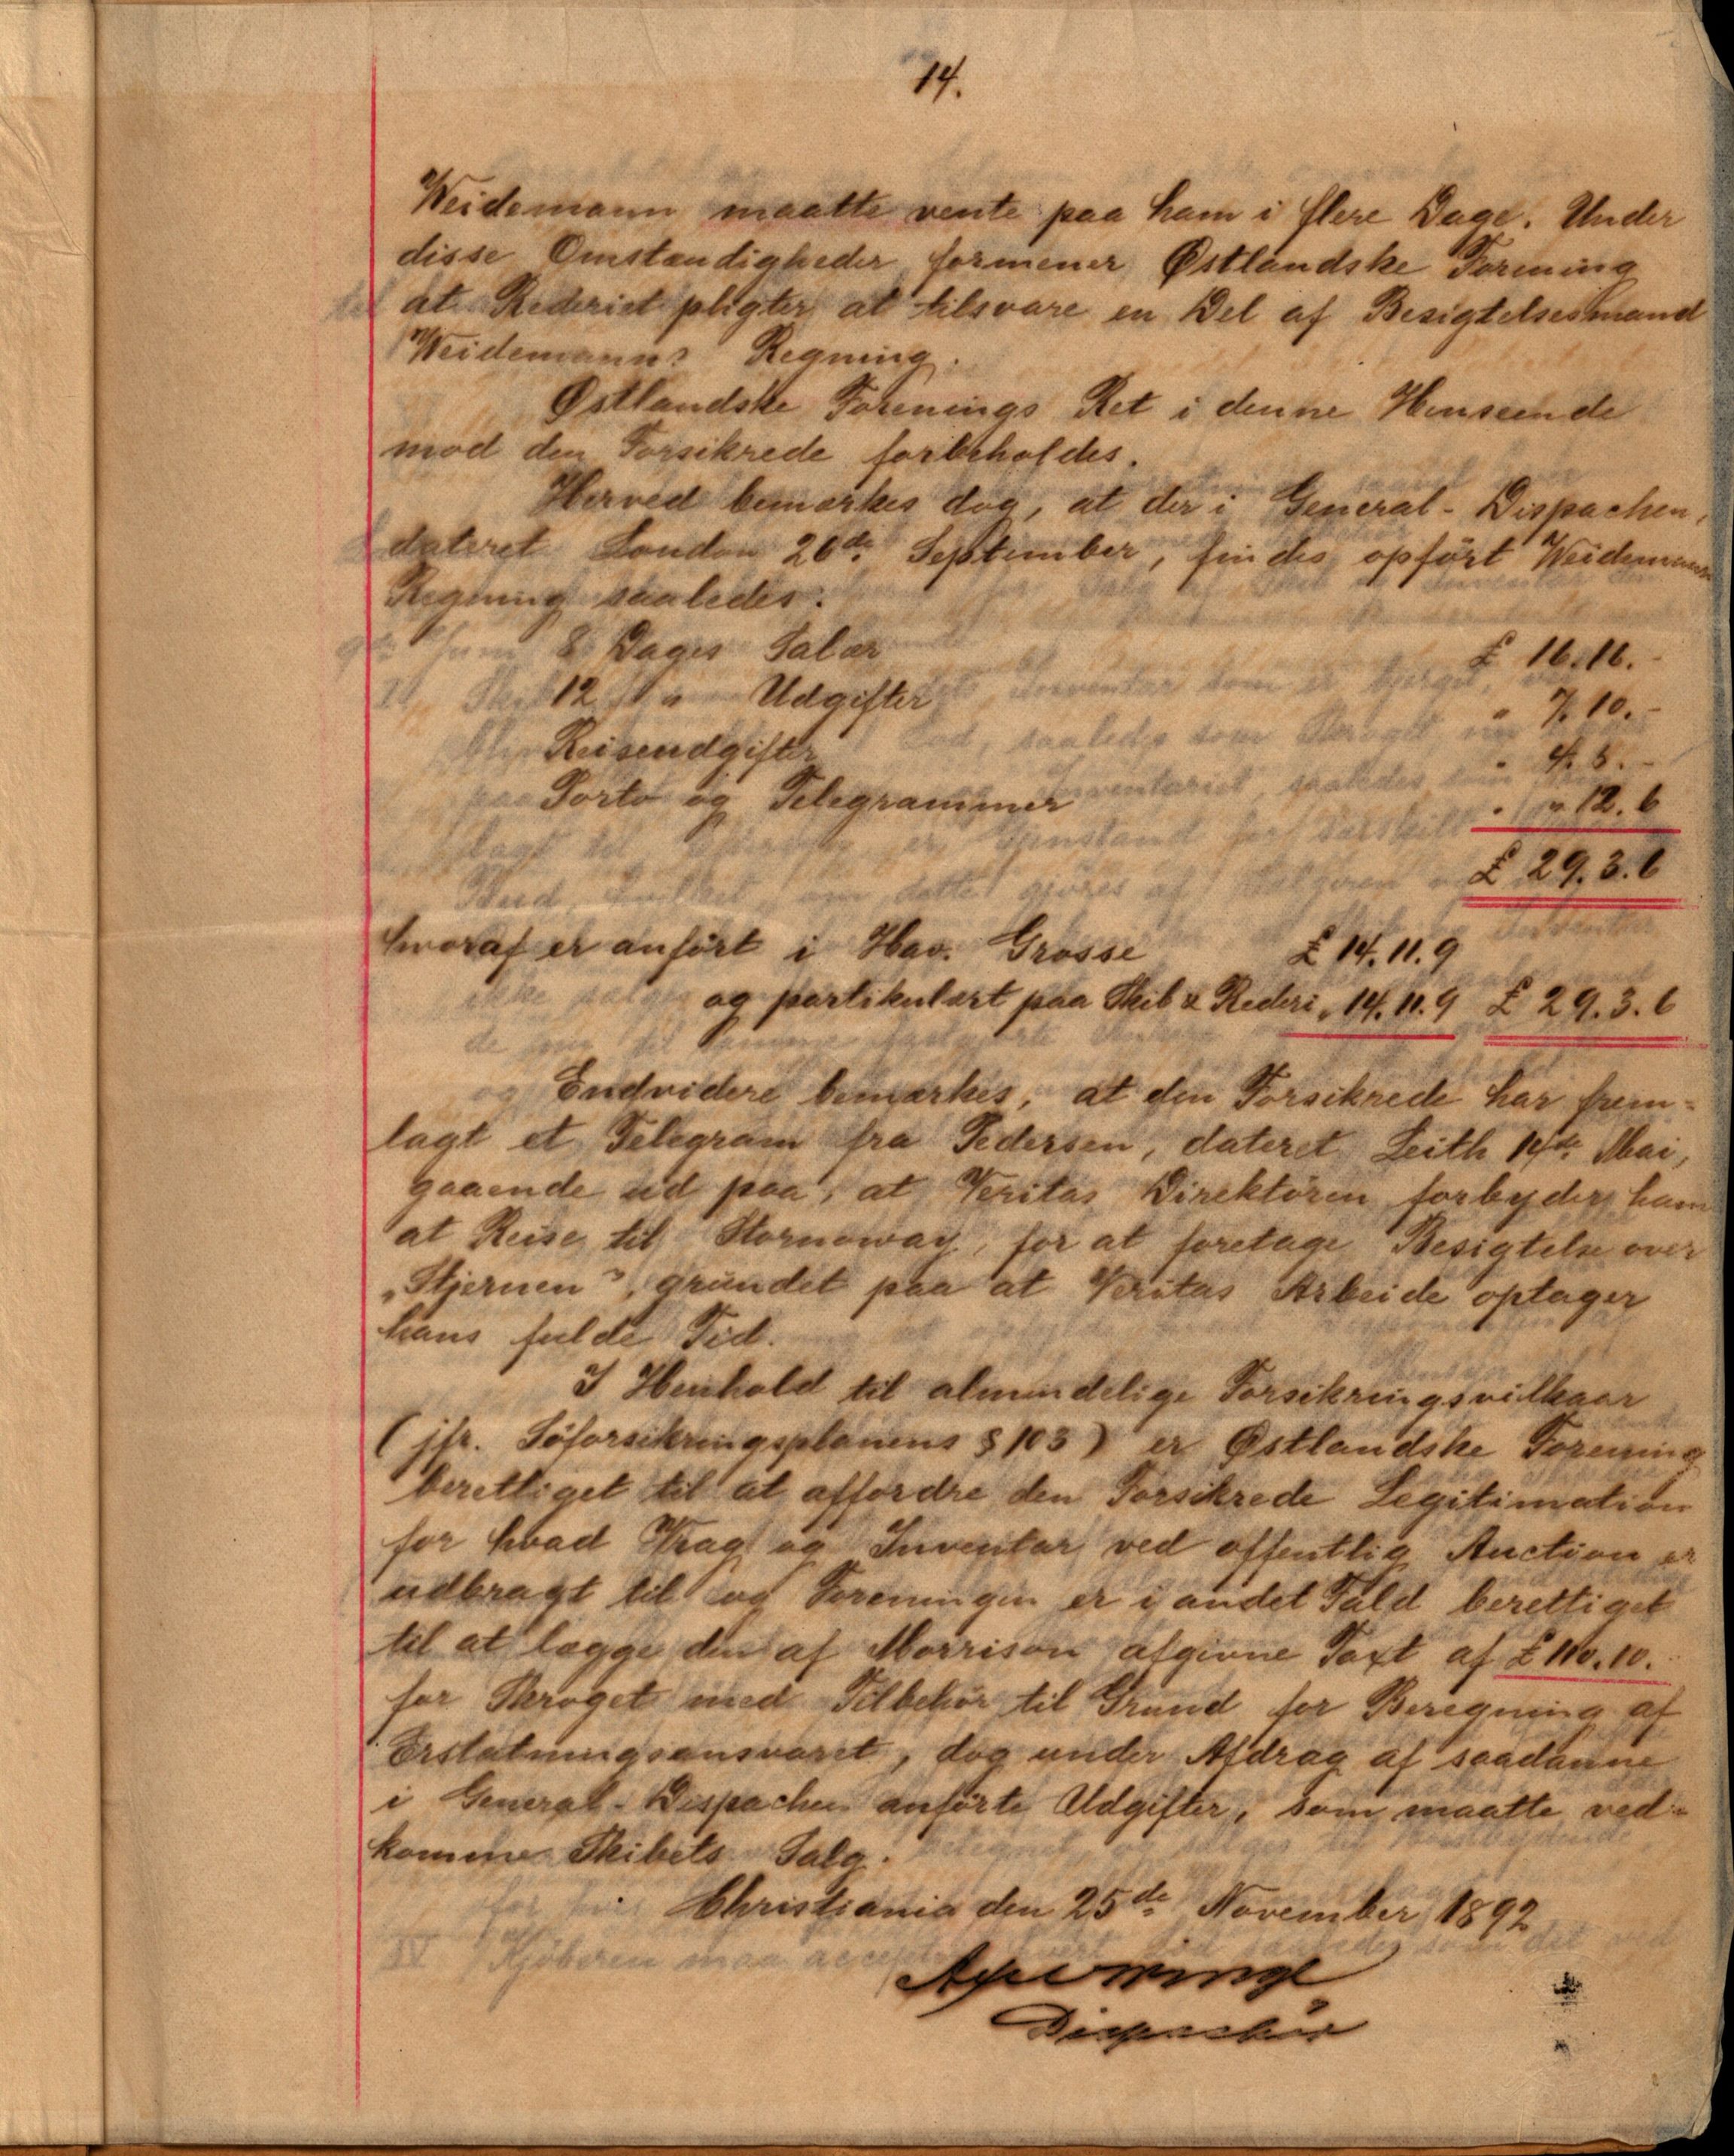 14.
Weidemann maatte vente paa ham i flere Dage. Under
disse Omstændigheder formener Østlandske Forening
at Rederiet pligter at tilsvare en Del af Besigtelsesmand
Weidemanns Regning.
Østlandske Forenings Ret i denne Henseende
mod den Forsikrede forbeholdes.
Herved bemærkes dog, at der i General-Dispachen,
dateret London 26de September, findes opført Weidemanns
Regning saaledes:
8 Dages Salær £ 16.16.-
12 " Udgifter " 7.10.-
Reiseudgifter " 4.5.-
Porto og Telegrammer " " 12.6
£ 29.3.6
hvoraf er anført i Hav. Grosse £ 14.11.9
og partikulært paa Skib & Rederi " 14.11.9 £ 29.3.6
Endvidere bemærkes, at den Forsikrede har frem-
lagt et Telegram fra Pedersen, dateret Leith 14de Mai,
gaaende ud paa, at Veritas Direktøren forbyder ham
at Reise til Stornoway, for at foretage Besigtelse over
„Stjernen", grundet paa at Veritas Arbeide optager
hans fulde Tid.
I Henhold til almindelige Forsikringsvilkaar
(jfr. Søforsikringsplanens § 103) er Østlandske Forening
berettiget til at affordre den Forsikrede Legitimation
for hvad Vrag og Inventar ved offentlig Auction er
udbragt til og Foreningen er i andet Fald berettiget
til at lægge den af Morrison afgivne Taxt af £ 110.10.-
for Vraget med Tilbehør til Grund for Beregning af
Erstatningsansvaret, dog under Afdrag af saadanne
i General-Dispachen anførte Udgifter, som maatte ved-
komme Skibets Salg.
Christiania den 25de November 1892
Dispachør